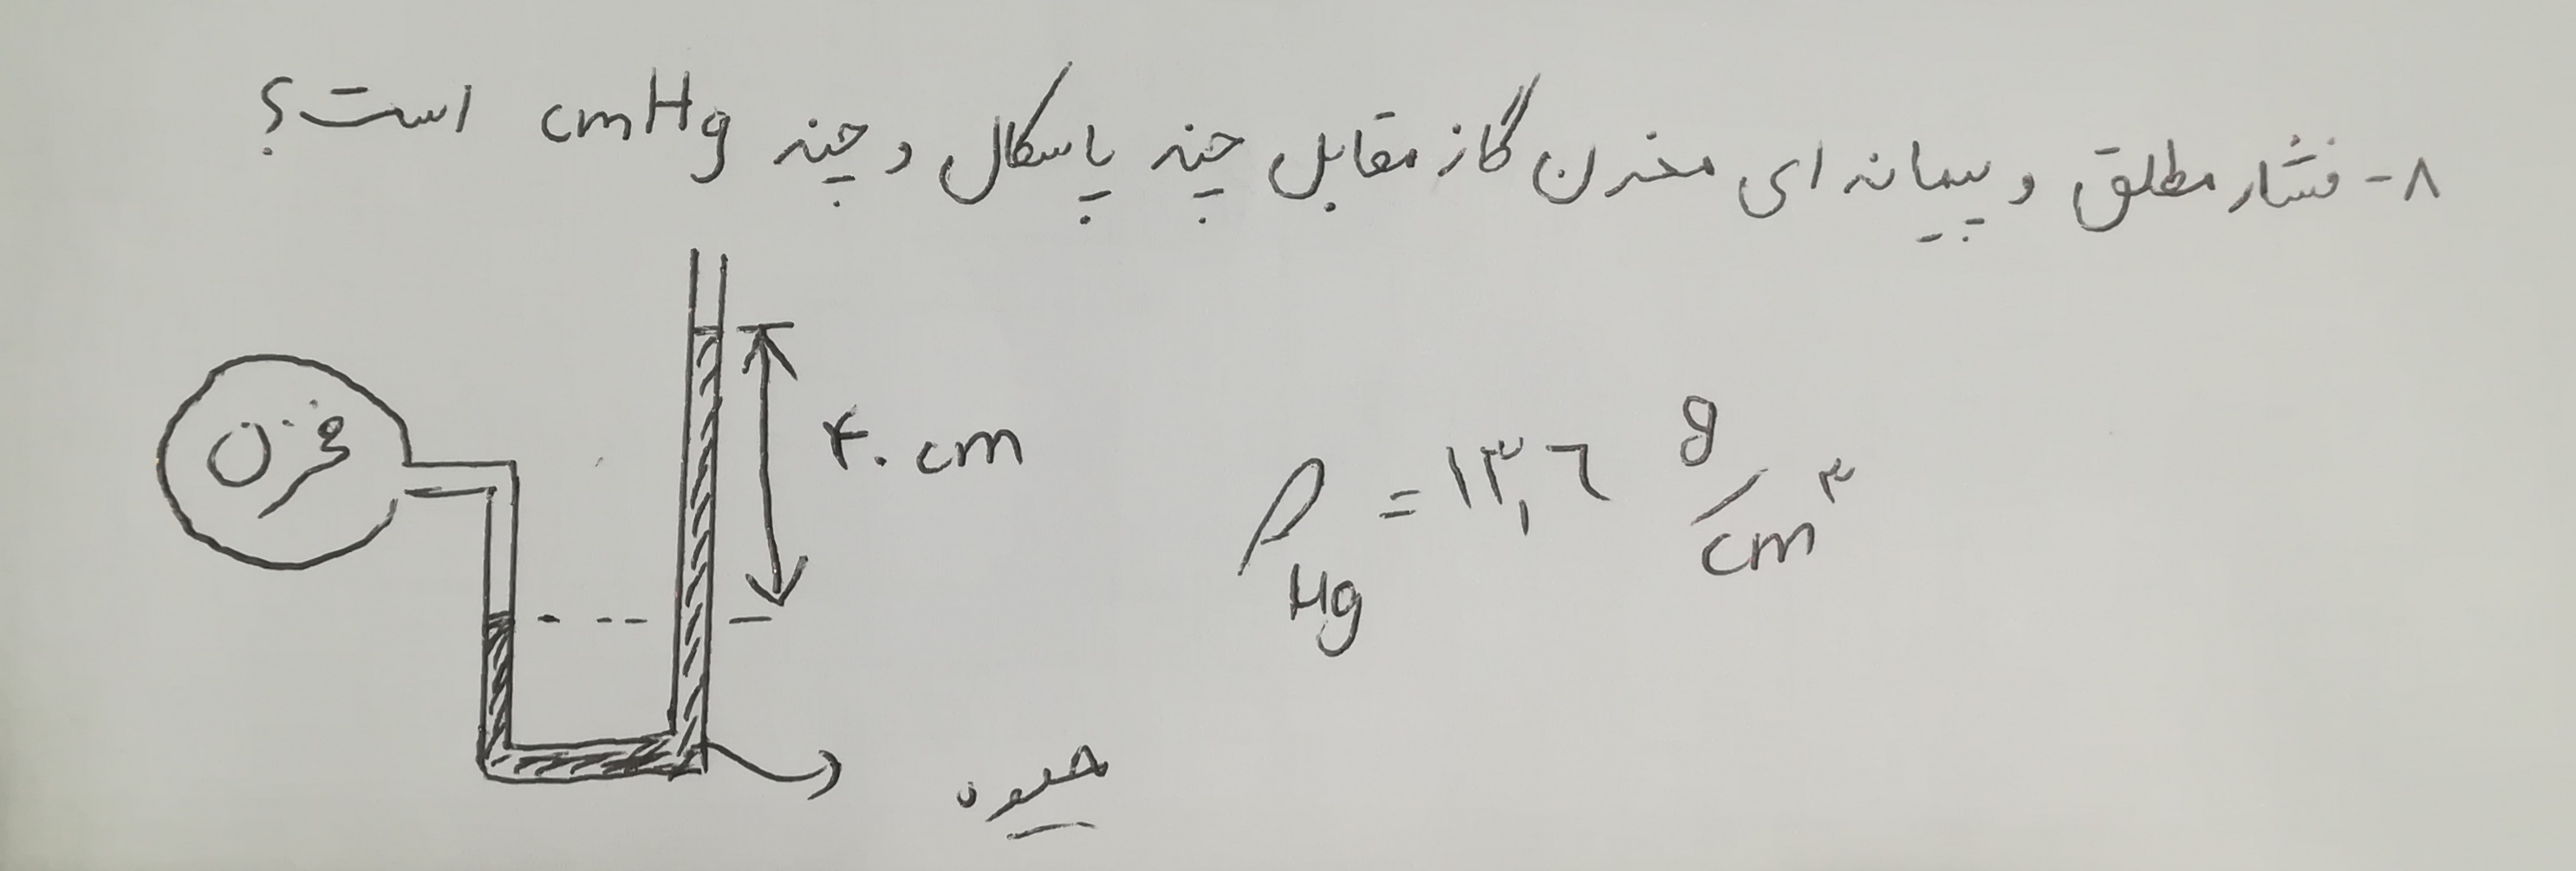 ۸- فشار مطلق و پیمانه ای مخزن گاز مقابل چند پاسکال و چند cmHg است؟
مخزن
۴۰ cm
ρHg = ۱۳,۶ g/cm³
جیوه